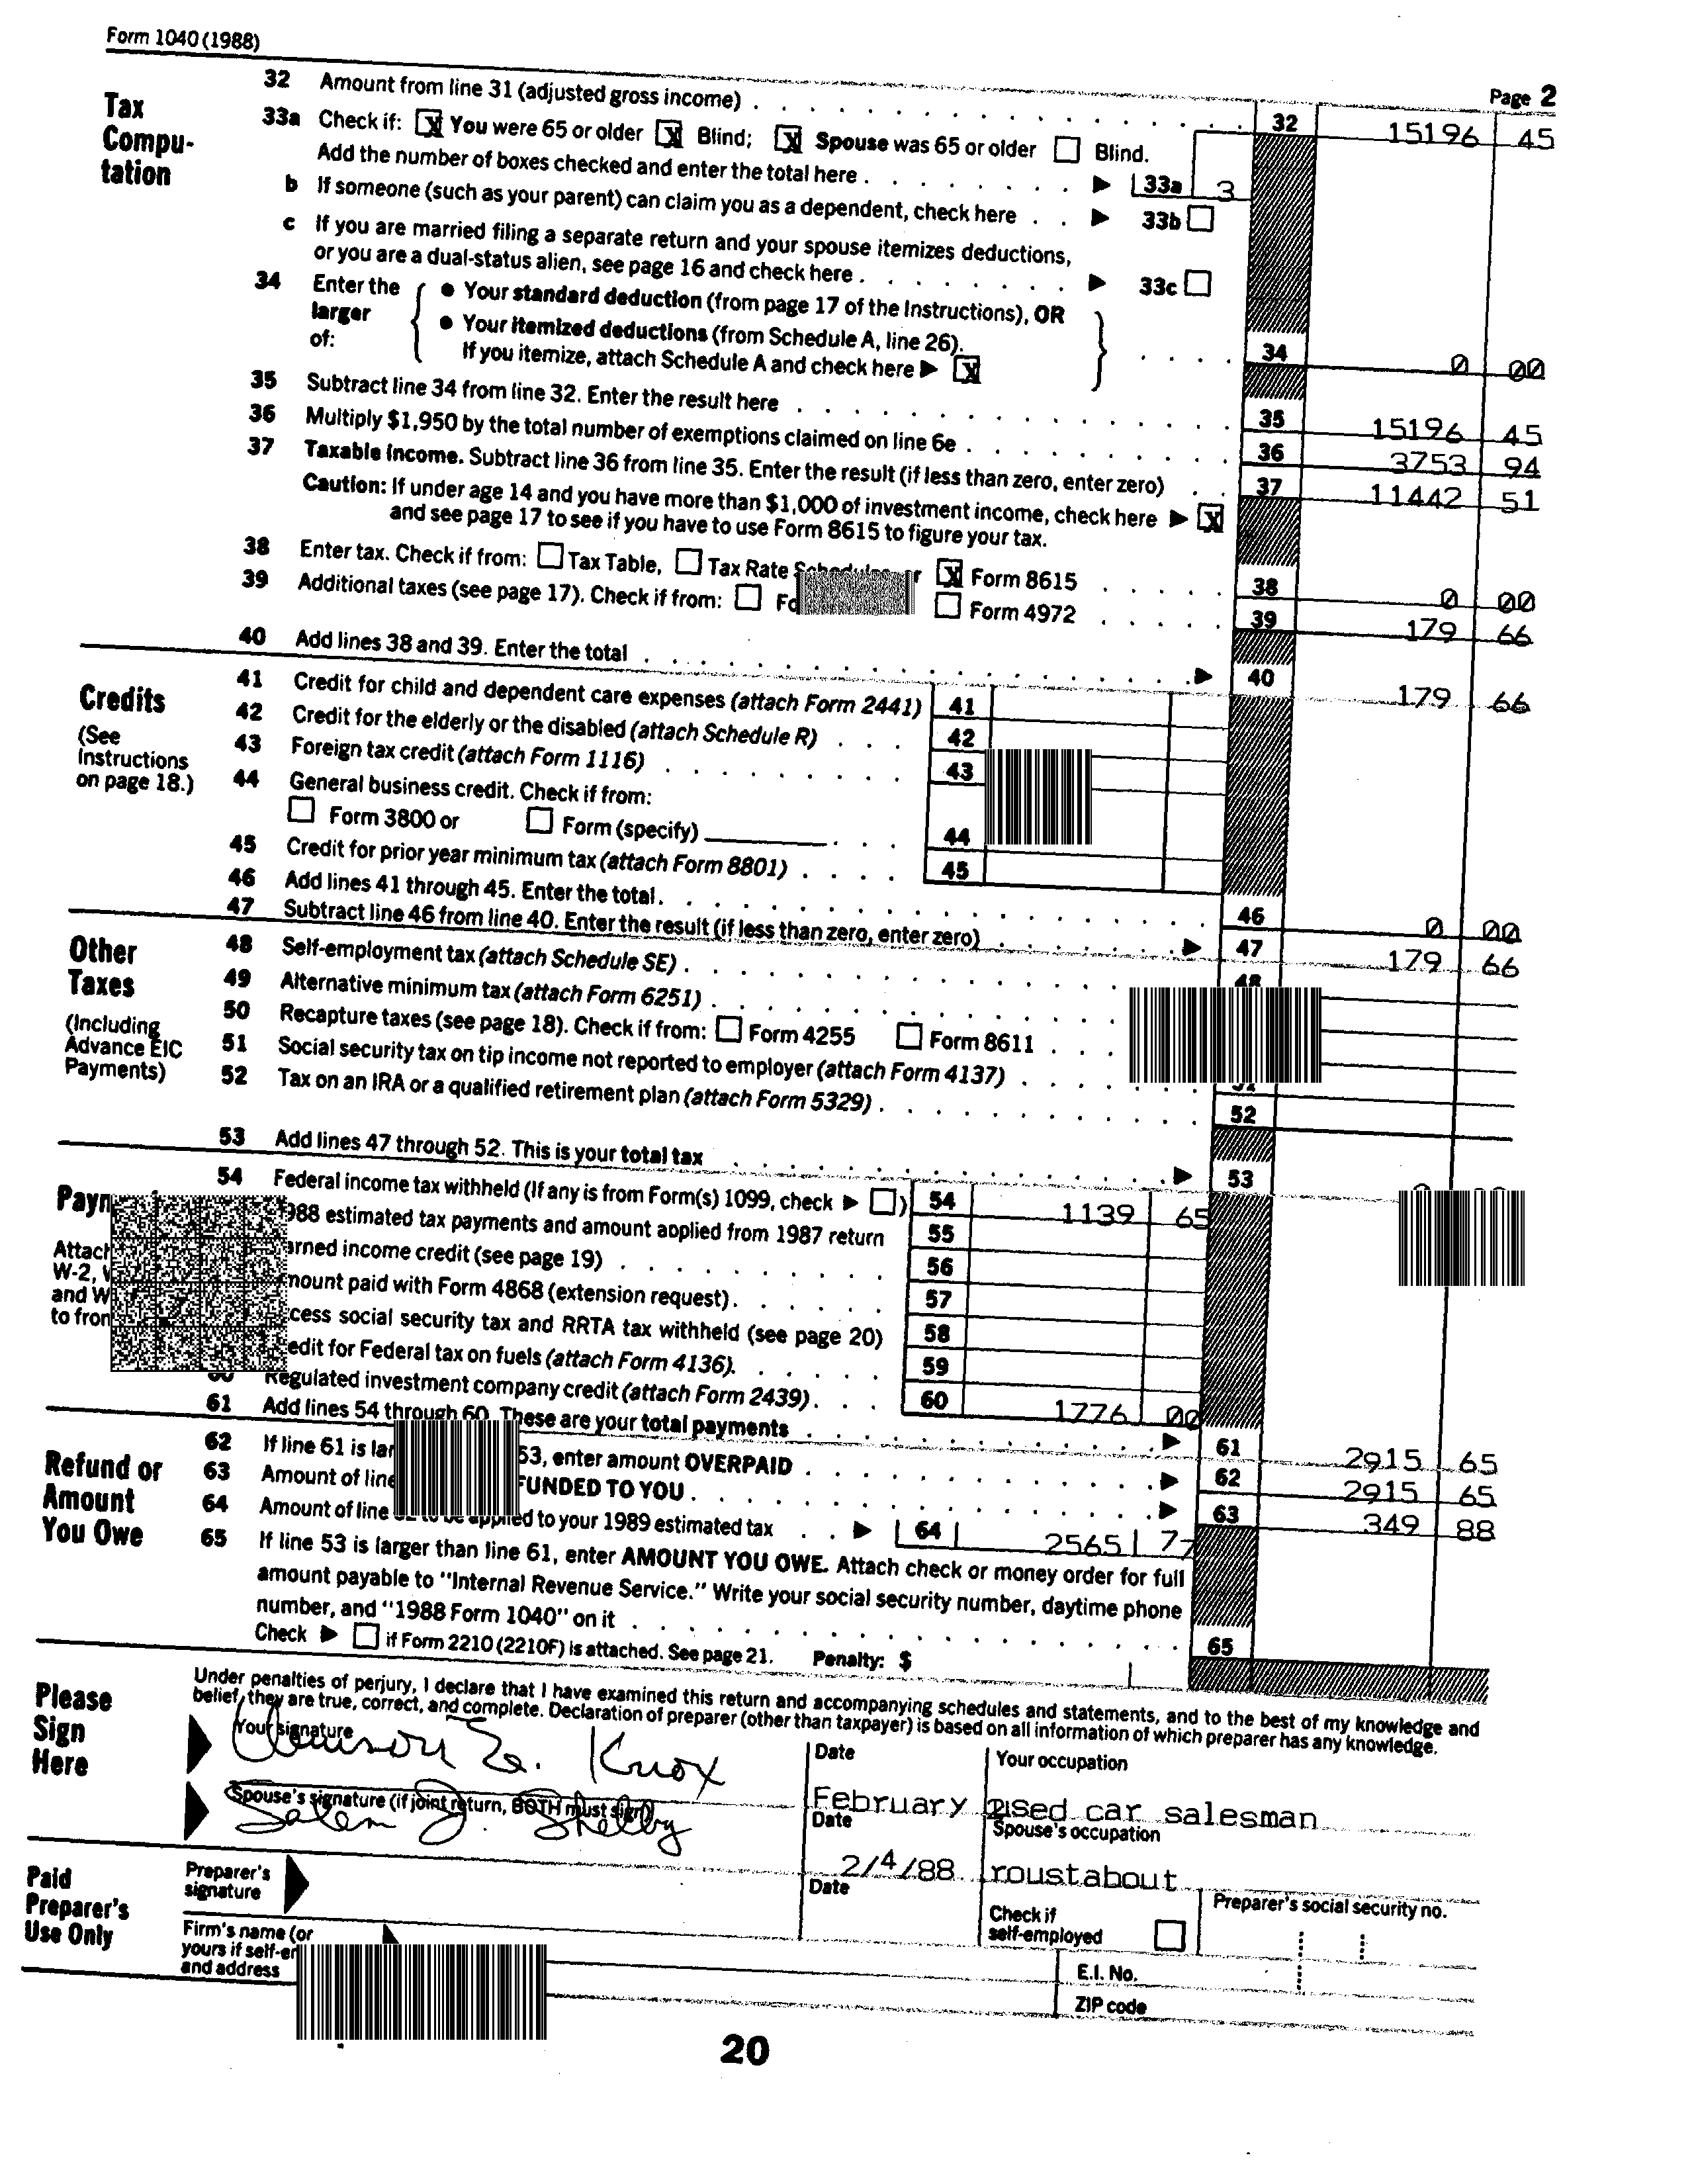 Form 1040 (1988)
Page 2
Tax Compu-tation
32 Amount from line 31 (adjusted gross income) 32 15196 45
33a Check if: X You were 65 or older X Blind; X Spouse was 65 or older Blind.
Add the number of boxes checked and enter the total here 33a 3
b If someone (such as your parent) can claim you as a dependent, check here 33b
c If you are married filing a separate return and your spouse itemizes deductions,
or you are a dual-status alien, see page 16 and check here 33c
34 Enter the larger of:
• Your standard deduction (from page 17 of the Instructions), OR
• Your itemized deductions (from Schedule A, line 26).
If you itemize, attach Schedule A and check here X 34 0 00
35 Subtract line 34 from line 32. Enter the result here 35 15196 45
36 Multiply $1,950 by the total number of exemptions claimed on line 6e 36 3753 94
37 Taxable income. Subtract line 36 from line 35. Enter the result (if less than zero, enter zero) 37 11442 51
Caution: If under age 14 and you have more than $1,000 of investment income, check here X
and see page 17 to see if you have to use Form 8615 to figure your tax.
38 Enter tax. Check if from: Tax Table, Tax Rate X Form 8615 38 0 00
39 Additional taxes (see page 17). Check if from: Form 4972 39 179 66
40 Add lines 38 and 39. Enter the total 40 179 66
Credits
(See Instructions on page 18.)
41 Credit for child and dependent care expenses (attach Form 2441) 41
42 Credit for the elderly or the disabled (attach Schedule R) 42
43 Foreign tax credit (attach Form 1116) 43
44 General business credit. Check if from:
Form 3800 or Form (specify) 44
45 Credit for prior year minimum tax (attach Form 8801) 45
46 Add lines 41 through 45. Enter the total. 46 0 00
47 Subtract line 46 from line 40. Enter the result (if less than zero, enter zero) 47 179 66
Other Taxes
(Including Advance EIC Payments)
48 Self-employment tax (attach Schedule SE)
49 Alternative minimum tax (attach Form 6251)
50 Recapture taxes (see page 18). Check if from: Form 4255 Form 8611
51 Social security tax on tip income not reported to employer (attach Form 4137)
52 Tax on an IRA or a qualified retirement plan (attach Form 5329) 52
53 Add lines 47 through 52. This is your total tax 53
54 Federal income tax withheld (If any is from Form(s) 1099, check ) 54 1139 65
estimated tax payments and amount applied from 1987 return 55
income credit (see page 19) 56
paid with Form 4868 (extension request) 57
social security tax and RRTA tax withheld (see page 20) 58
for Federal tax on fuels (attach Form 4136) 59
Regulated investment company credit (attach Form 2439) 60 1776 00
61 Add lines 54 through 60. These are your total payments 61 2915 65
Refund or Amount You Owe
62 If line 61 is 53, enter amount OVERPAID 62 2915 65
63 Amount of line TO YOU 63 349 88
64 Amount of line applied to your 1989 estimated tax 64 2565 77
65 If line 53 is larger than line 61, enter AMOUNT YOU OWE. Attach check or money order for full
amount payable to "Internal Revenue Service." Write your social security number, daytime phone
number, and "1988 Form 1040" on it 65
Check if Form 2210 (2210F) is attached. See page 21. Penalty: $
Please Sign Here
Under penalties of perjury, I declare that I have examined this return and accompanying schedules and statements, and to the best of my knowledge and
belief, they are true, correct, and complete. Declaration of preparer (other than taxpayer) is based on all information of which preparer has any knowledge.
Your signature Date Your occupation
E. Knox February used car salesman
Spouse's signature (if joint return, BOTH must sign) Date Spouse's occupation
Salem J. Shelby 2/4/88 roustabout
Paid Preparer's Use Only
Preparer's signature Date Check if self-employed Preparer's social security no.
Firm's name (or yours if and address E.I. No.
ZIP code
20